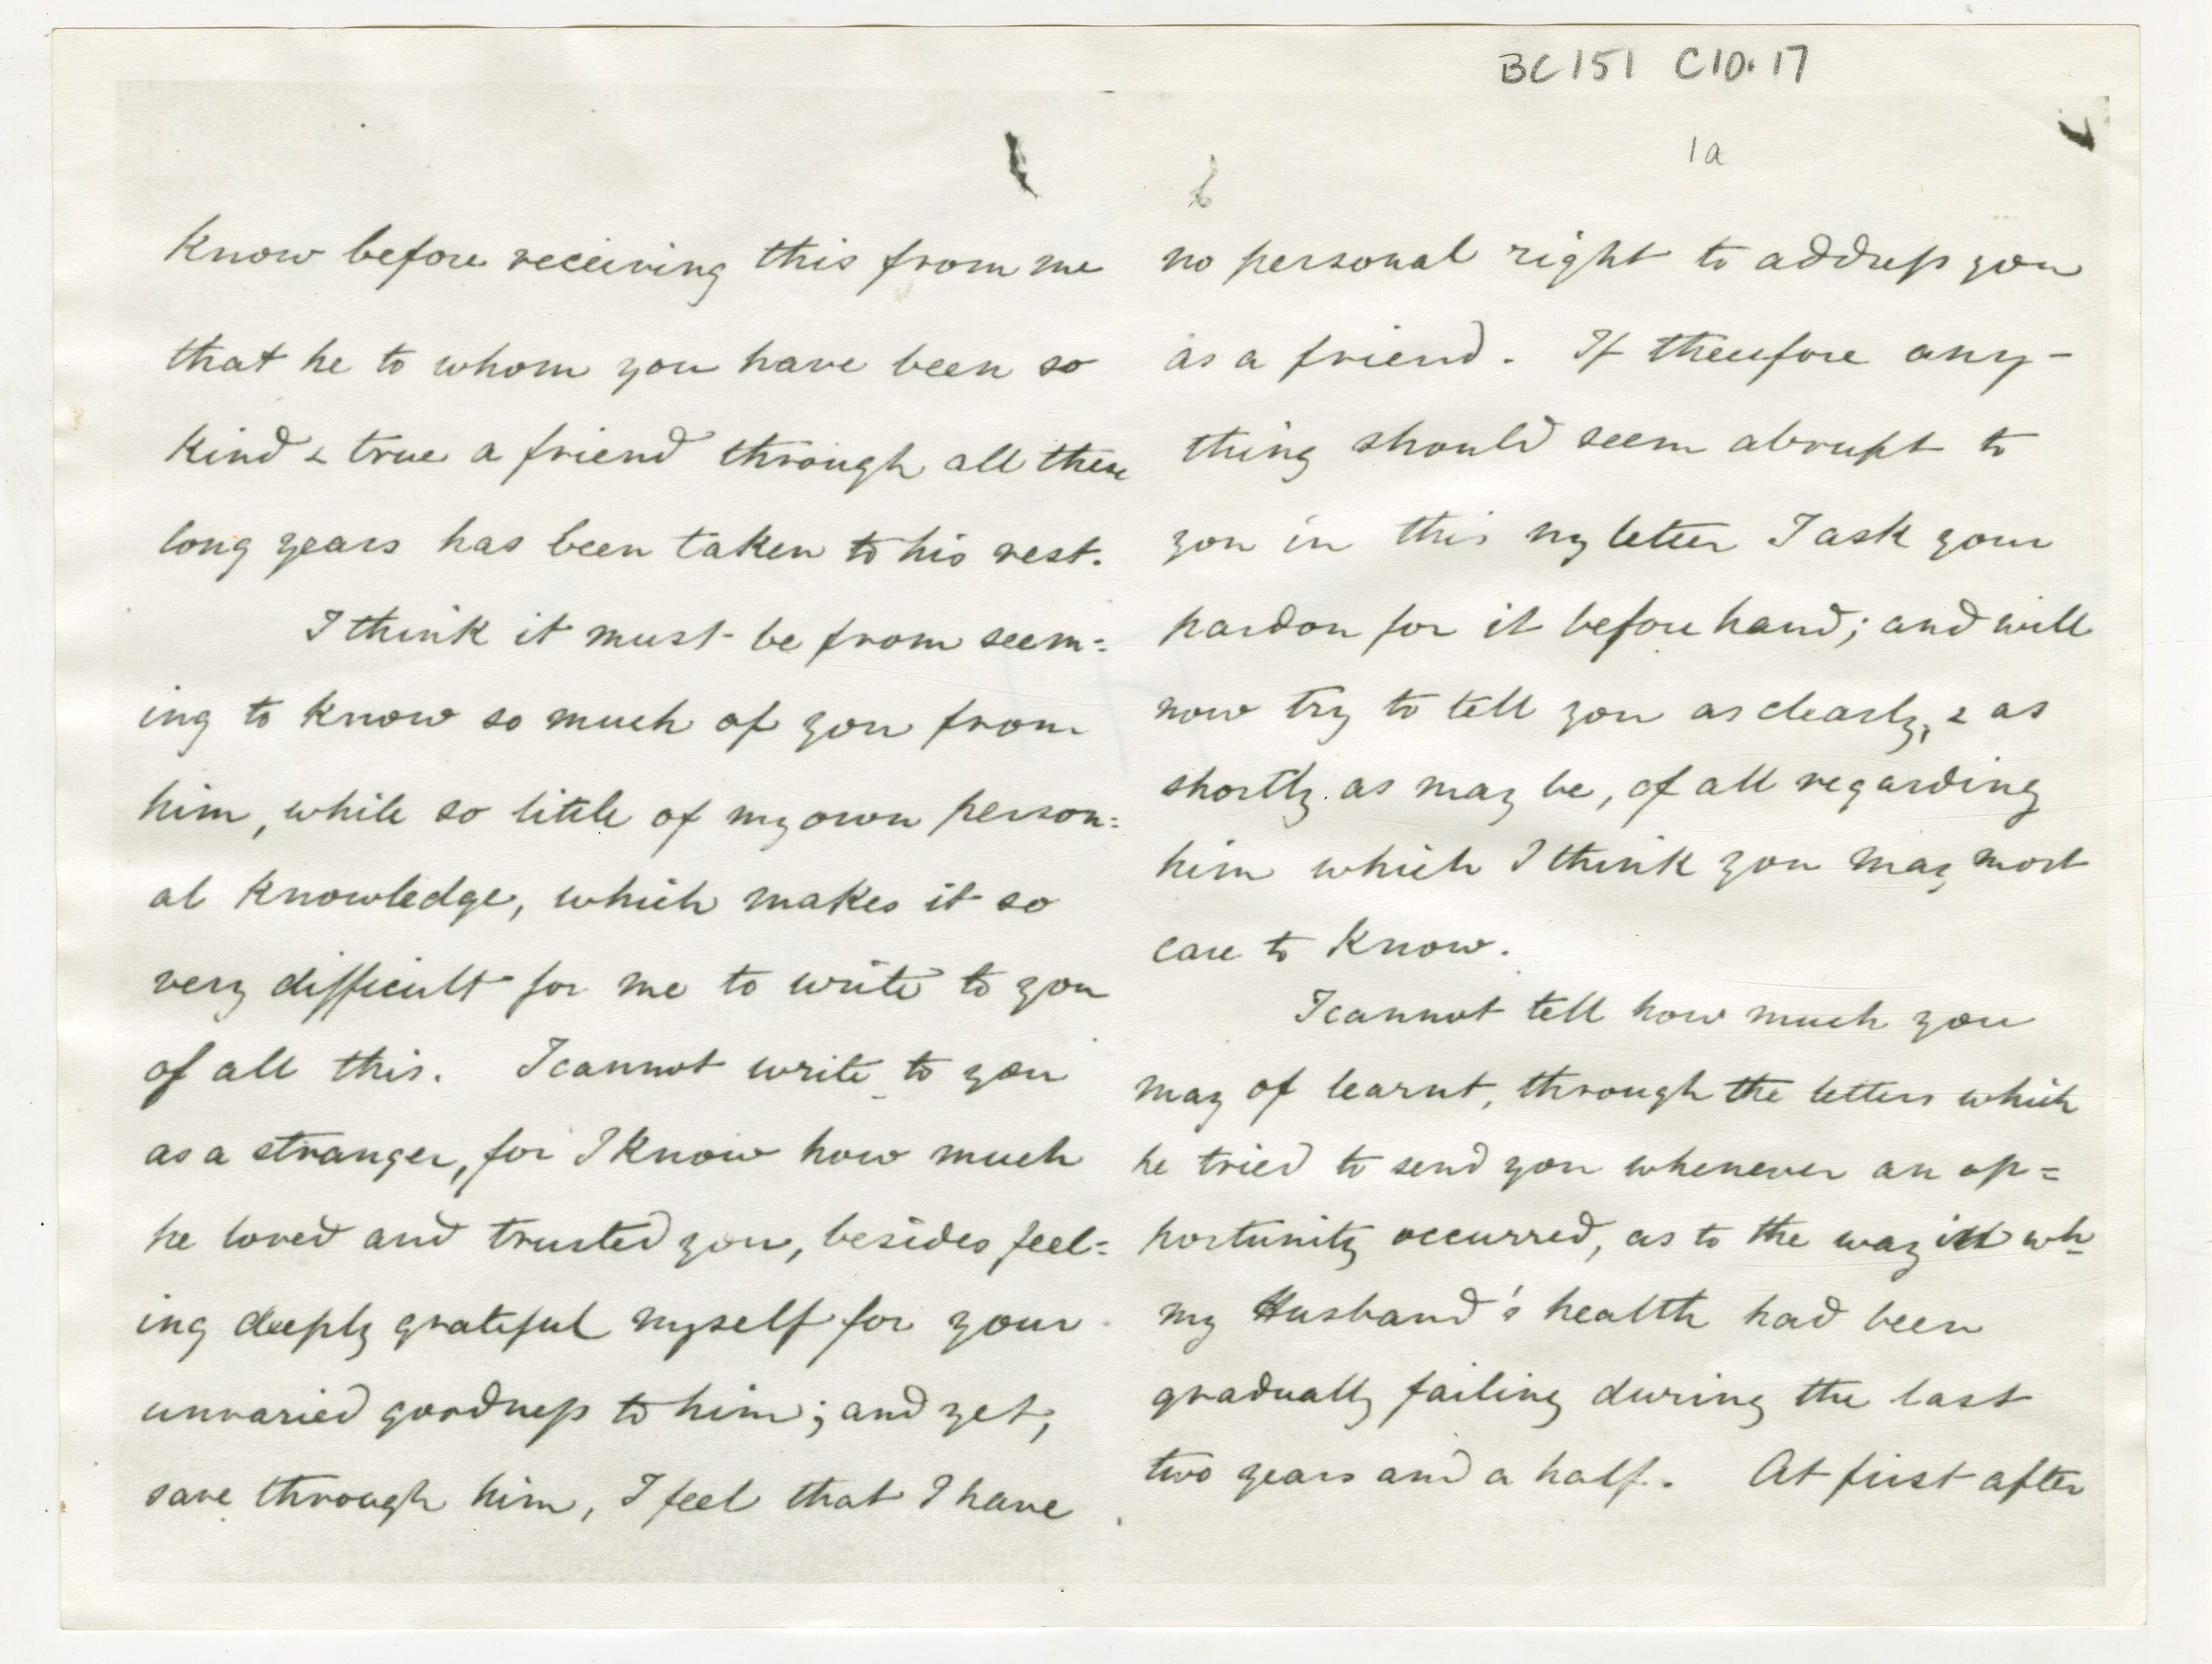 BC 151 C10.17
1a
Know before receiving this from me
that he to whom you have been so
kind & true a friend through all these
long years has been taken to his rest.
I think it must be from seem=
ing to know so much of you from
him, while so little of my own person=
al knowledge, which makes it so
very difficult for me to write to you
of all this. I cannot write to you
as a stranger, for I know how much
he loved and trusted you, besides feel=
ing deeply grateful myself for your
unvaried goodness to him; and yet,
save through him, I feel that I have
no personal right to address you
as a friend. If therefore any-
thing should seem abrupt to
you in this my letter I ask your
pardon for it before hand; and will
now try to tell you as clearly, & as
shortly as may be, of all regarding
him which I think you may most
care to know.
I cannot tell how much you
may of learnt, through the letters which
he tried to send you whenever an op=
portunity occurred, as to the way in wh
my Husband's health had been
gradually failing during the last
two years and a half. At first after